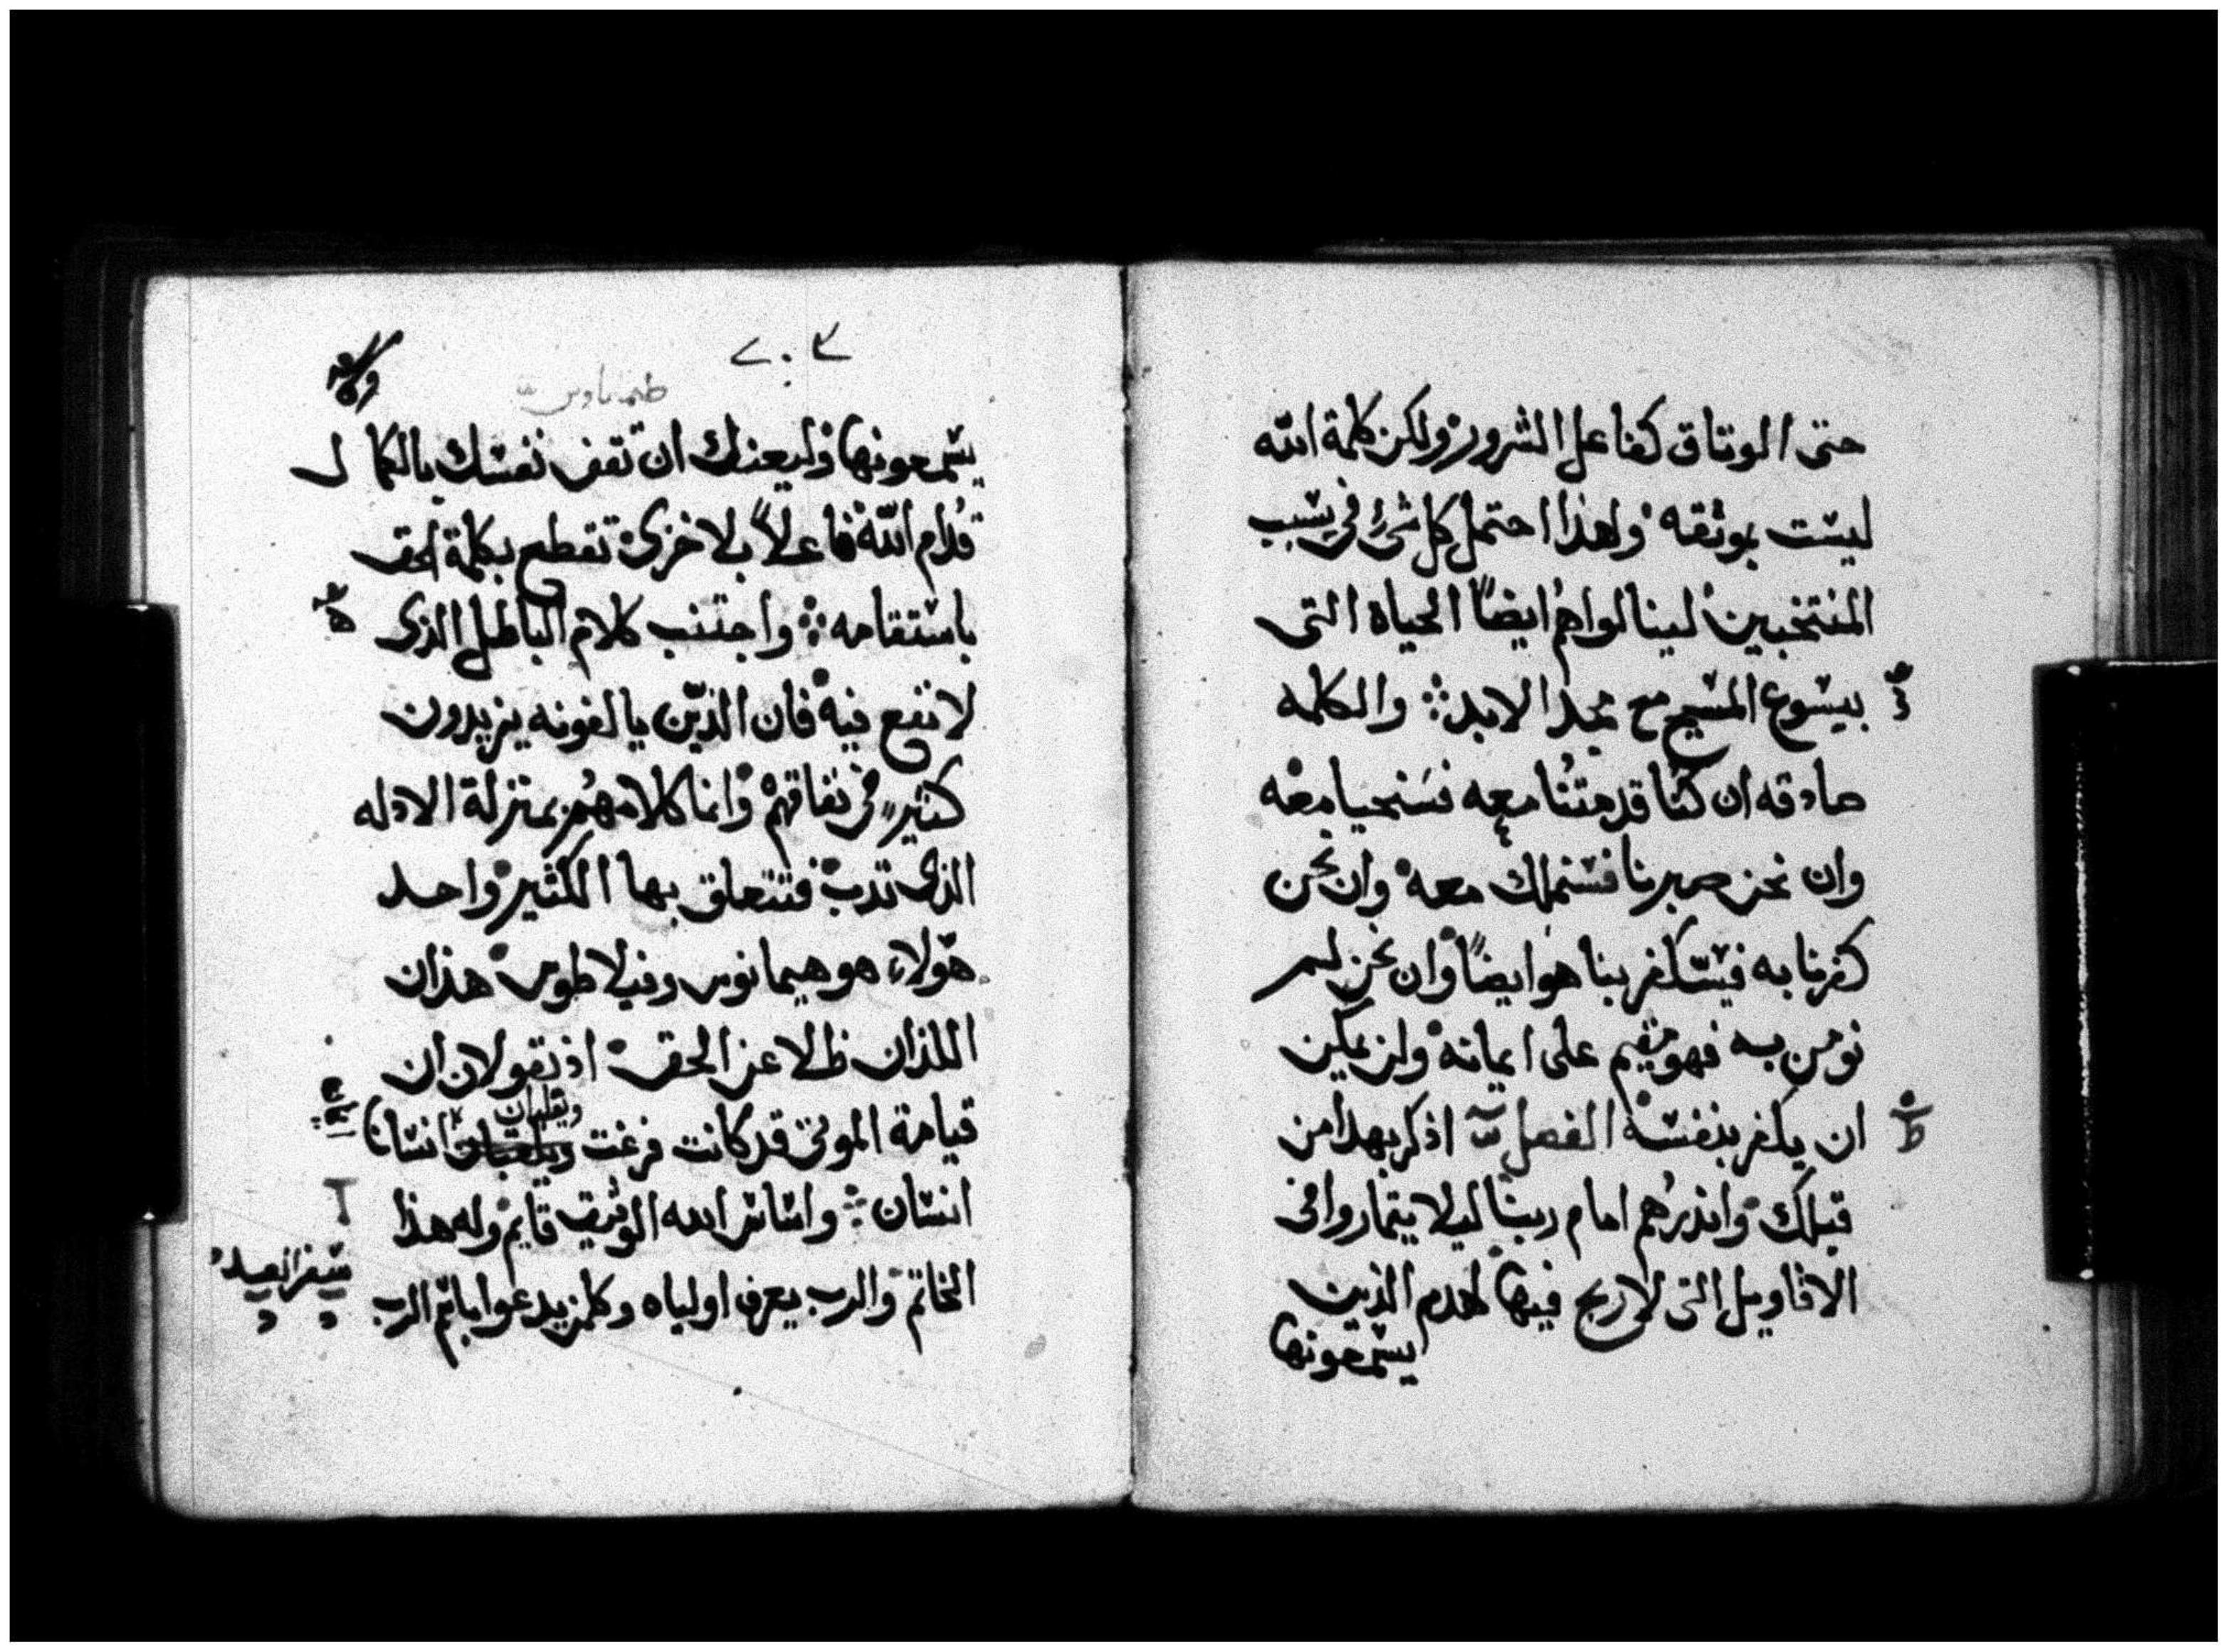 حتى الوثاق كفاعل الشرور ولكن كلمة الله
ليست بوثقه ولهذا احتمل كل شئ في سبب
المنتخبين لينالوا هم ايضاً الحياه التى
بيسوع المسيح مع مجد الابد والكلمه
صادقه ان كنا قد متنا معه فسنحيا معه
وان نحن صبرنا فسنملك معه وان نحن
كفرنا به فيسكفر بنا هو ايضاً وان نحن لم
نومن به فهو مقيم على ايمانه ولن يمكن
ان يكفر بنفسه الفصل اذكر بهذا من
قبلك وانذرهم امام ربنا ليلا يتماروا في
الاقاويل التى لا ربح فيها لهدم الذين
يسمعونها
٢٠٣
طيماتاوس
يسمعونها وليعنك ان تقف نفسك بالكمال
قدام الله فاعلاً بلا خزى تقطع بكلمة الحق
باستقامه واجتنب كلام الباطل الذى
لا نفع فيه فان الذين يالفونه يزيدون
كثير في نفاقهم وانما كلامهم بمنزلة الادله
الذى تدب فتتعلق بها الكثير واحد
هولاء هو هيمانوس وفيلاطوس هذان
اللذان ظلا عن الحق اذ يقولان ان
قيامة الموتى قد كانت فرغت ويقلبان انسانا
انسان واساس الله الوثيق قايم وله هذا
الخاتم والرب يعرف اولياه وكلمن يدعوا باسم الرب
سفر العدد